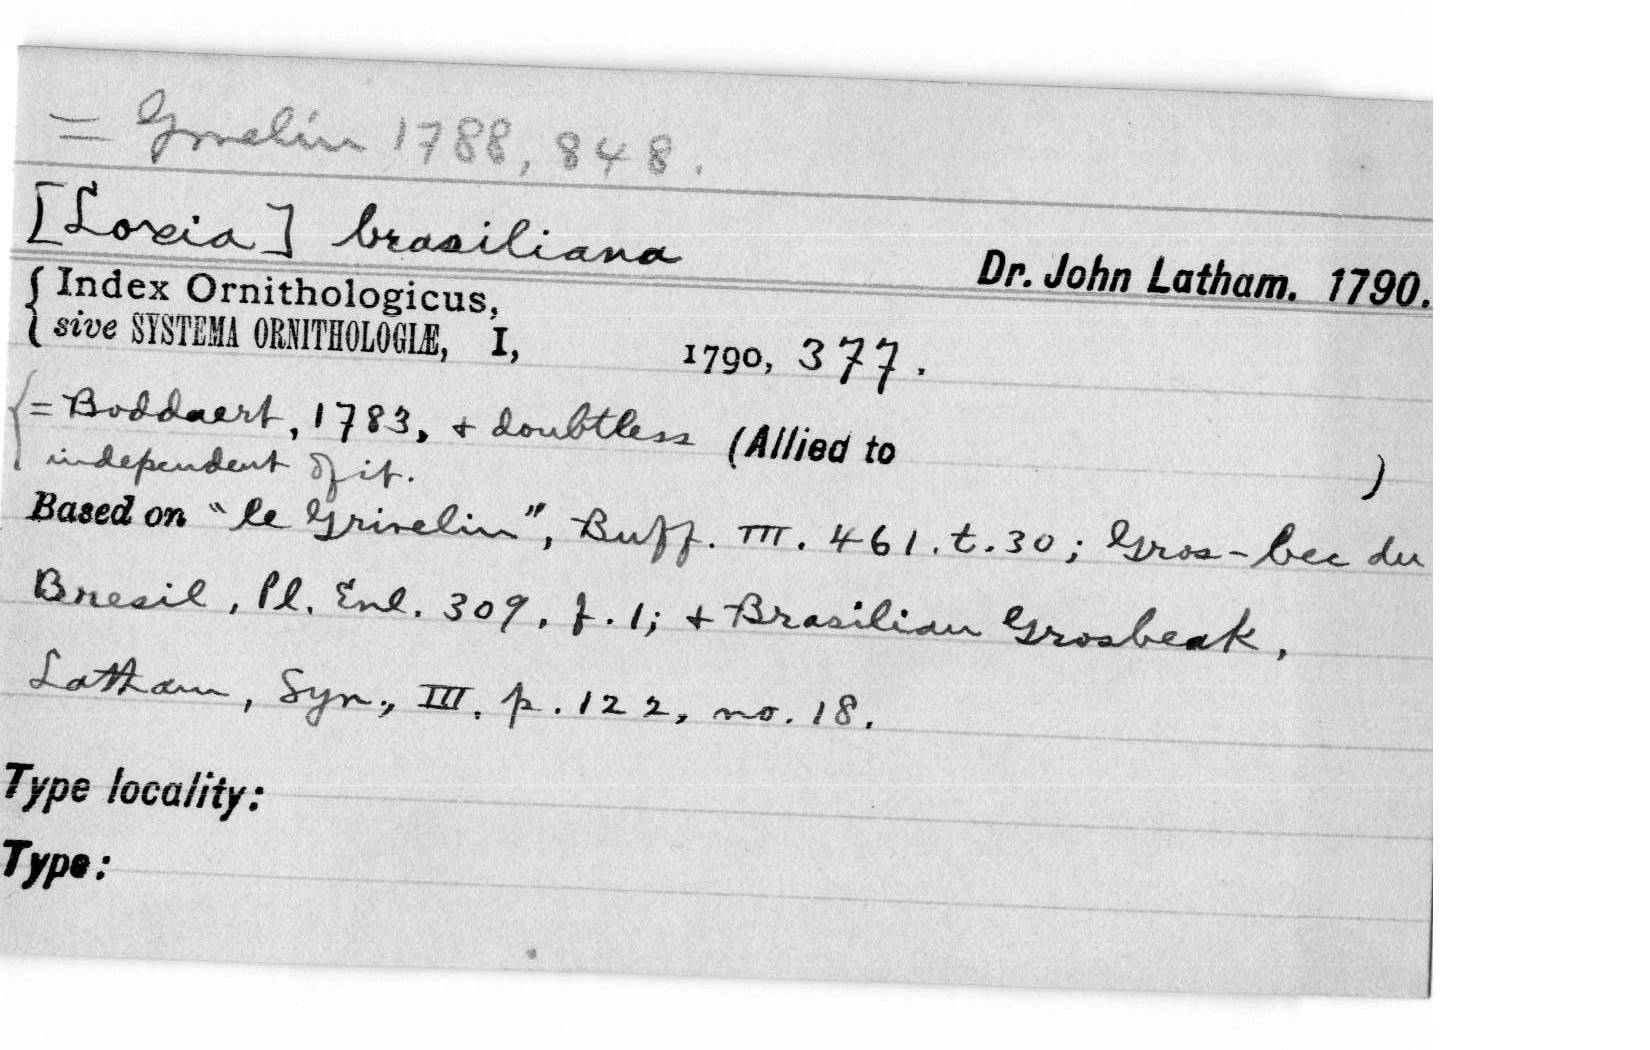 = Gmelin 1788, 848.
[Loxia] brasiliana
Dr. John Latham. 1790.
{ Index Ornithologicus,
sive SYSTEMA ORNITHOLOGIÆ, I, 1790, 377.
{ = Boddaert, 1783, + doubtless (Allied to )
independent of it.
Based on "le Grivelin", Buff. III. 461. t. 30; Gros-bec du
Bresil, Pl. Enl. 309, f. 1; + Brasilian Grosbeak,
Latham, Syn., III. p. 122, no. 18.
Type locality:
Type: